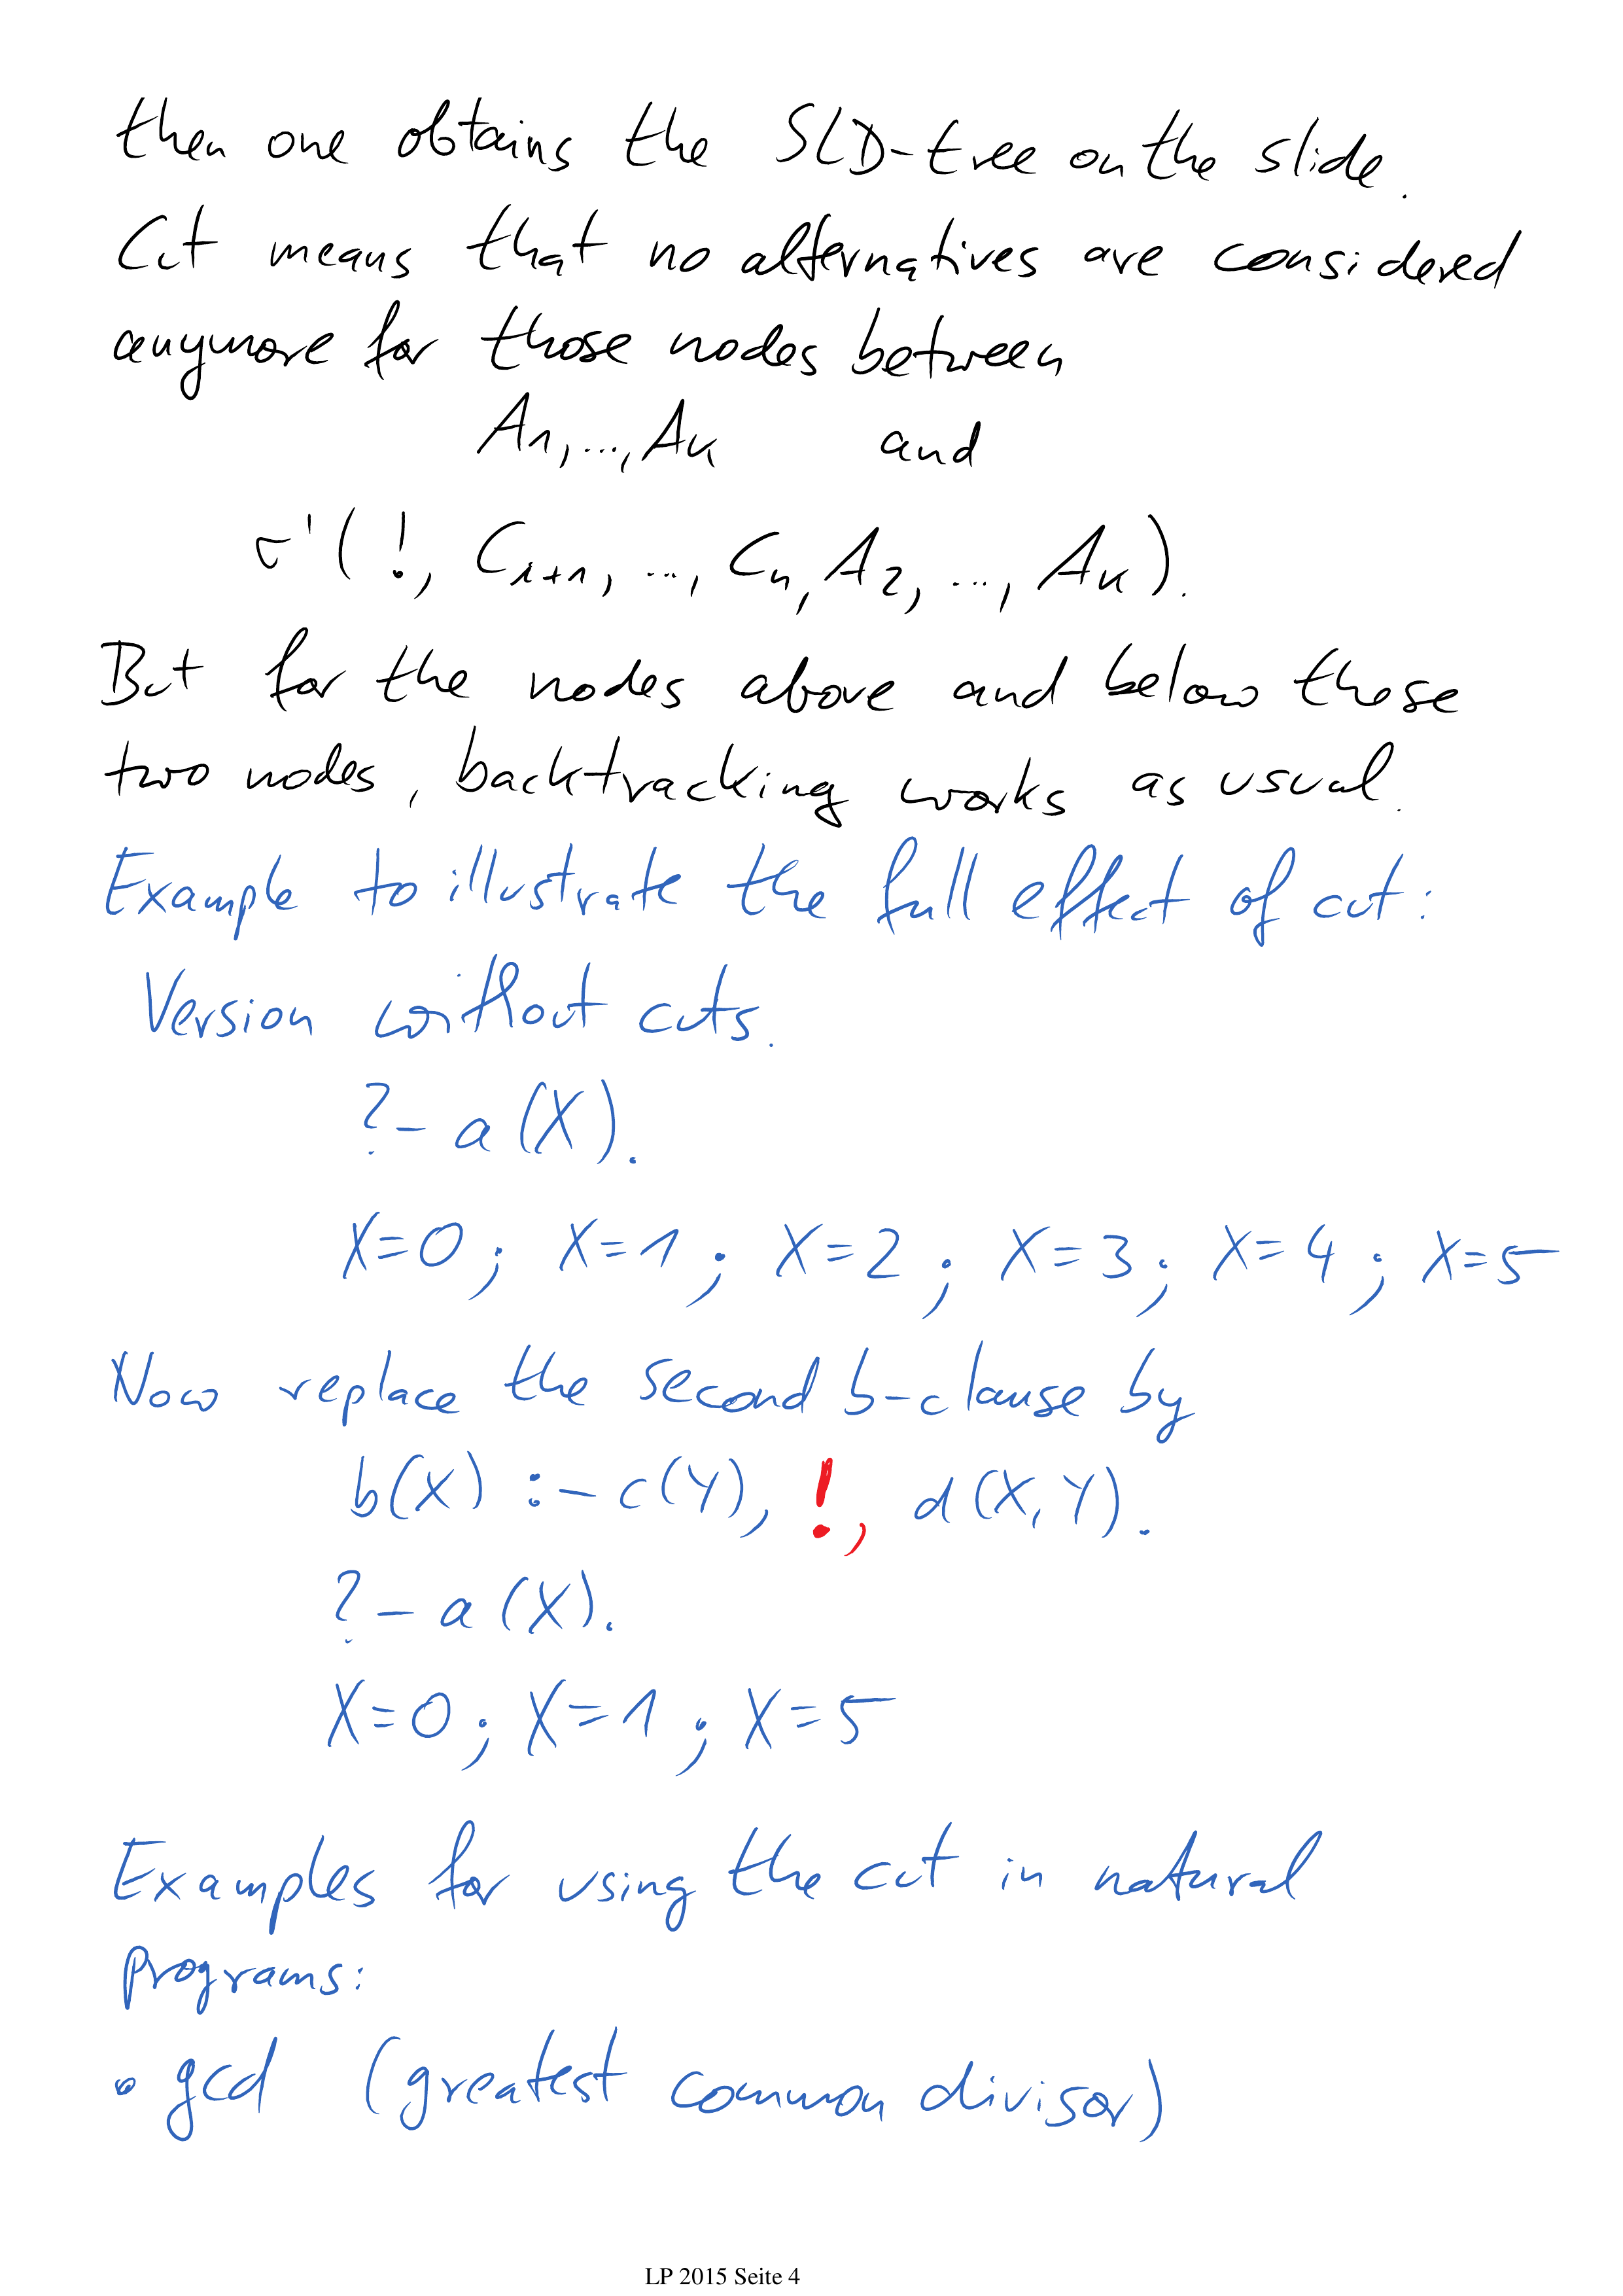 then one obtains the SLD-tree on the slide.
Cut means that no alternatives are considered
anymore for those nodes between
A1,...,Ak and
σ'(!, Ci+1, ..., Cn, A2, ..., Ak).
But for the nodes above and below these
two nodes, backtracking works as usual.
Example to illustrate the full effect of cut:
Version without cuts.
?- a(X).
X=0; X=1; X=2; X=3; X=4; X=5
Now replace the second b-clause by
b(X) :- c(Y), !, d(X,Y).
?- a(X).
X=0; X=1; X=5
Examples for using the cut in natural
programs:
• gcd (greatest common divisor)
LP 2015 Seite 4